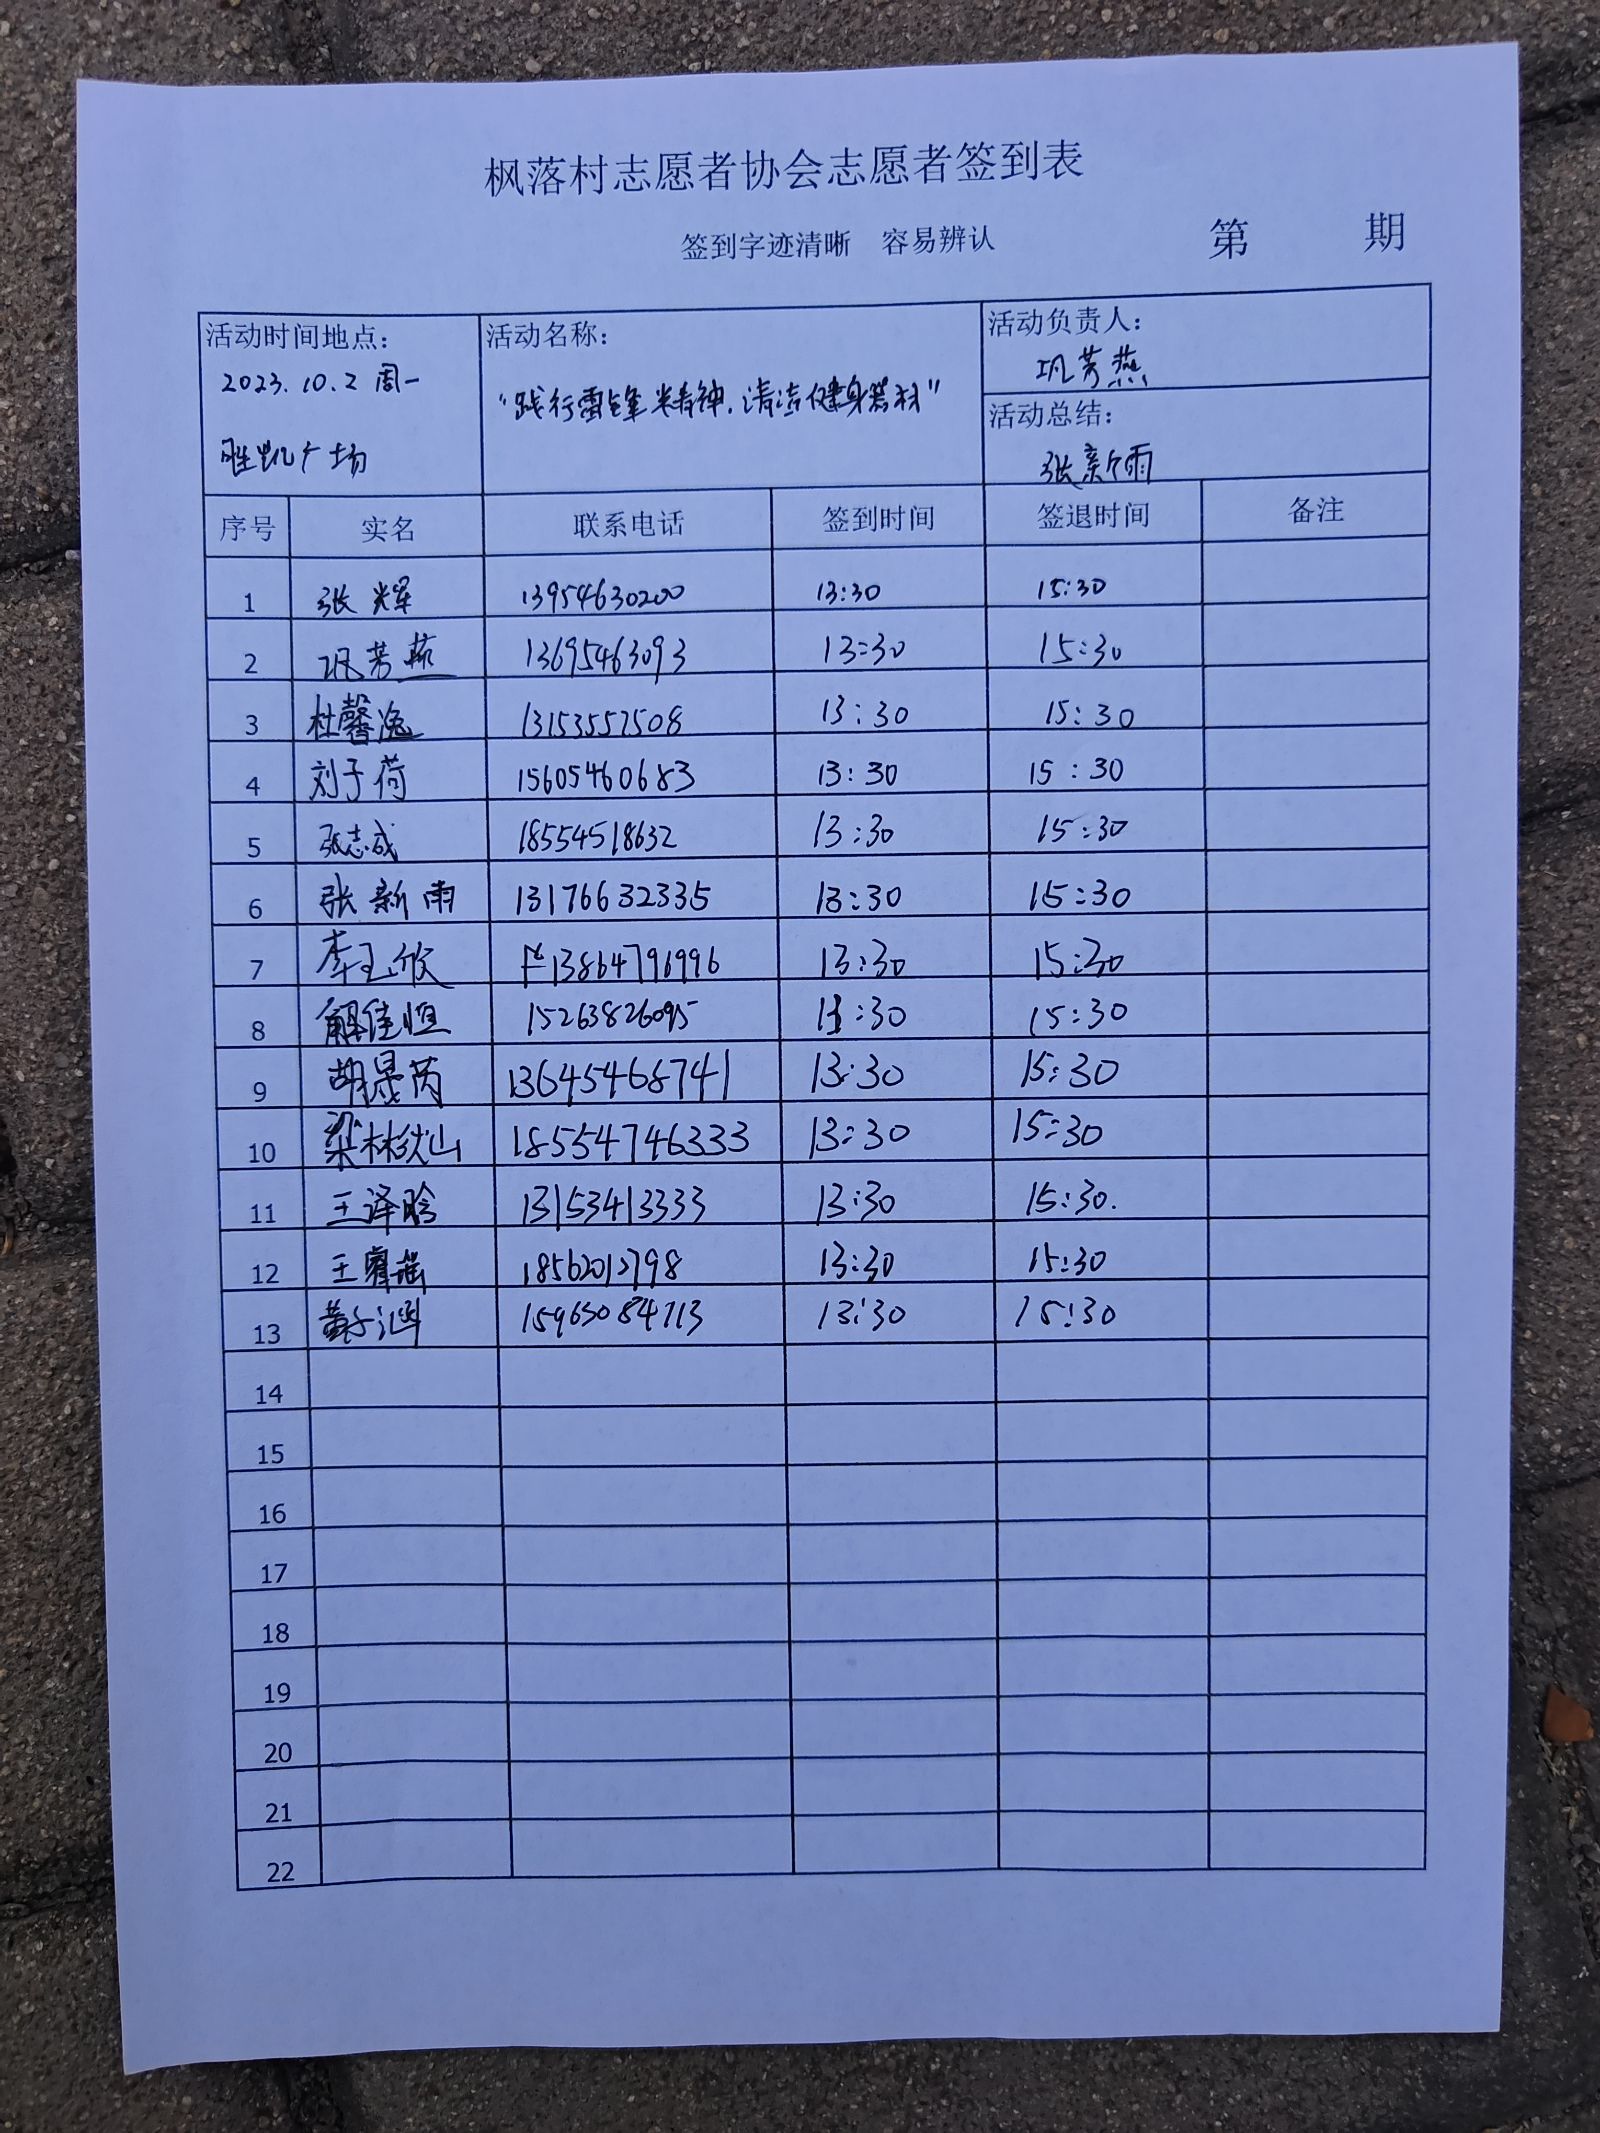 枫落村志愿者协会志愿者签到表
签到字迹清晰 容易辨认 第 期
活动时间地点： 活动名称： 活动负责人：
2023.10.2 周一 "践行雷锋精神,清洁健身器材" 巩芳燕
胜凯广场 活动总结：
张新雨
序号 实名 联系电话 签到时间 签退时间 备注
1 张辉 13954630200 13:30 15:30
2 巩芳燕 13695463093 13:30 15:30
3 杜馨逸 13153557508 13:30 15:30
4 刘子荷 15605460683 13:30 15:30
5 张志成 18554518632 13:30 15:30
6 张新雨 13176632335 13:30 15:30
7 李玉欣 13864796996 13:30 15:30
8 解佳恒 15263826095 13:30 15:30
9 胡晟芮 13645468741 13:30 15:30
10 梁林烒山 18554746333 13:30 15:30
11 王泽晗 13153413333 13:30 15:30.
12 王睿瑶 18562012798 13:30 15:30
13 黄子涵 15963084713 13:30 15:30
14
15
16
17
18
19
20
21
22